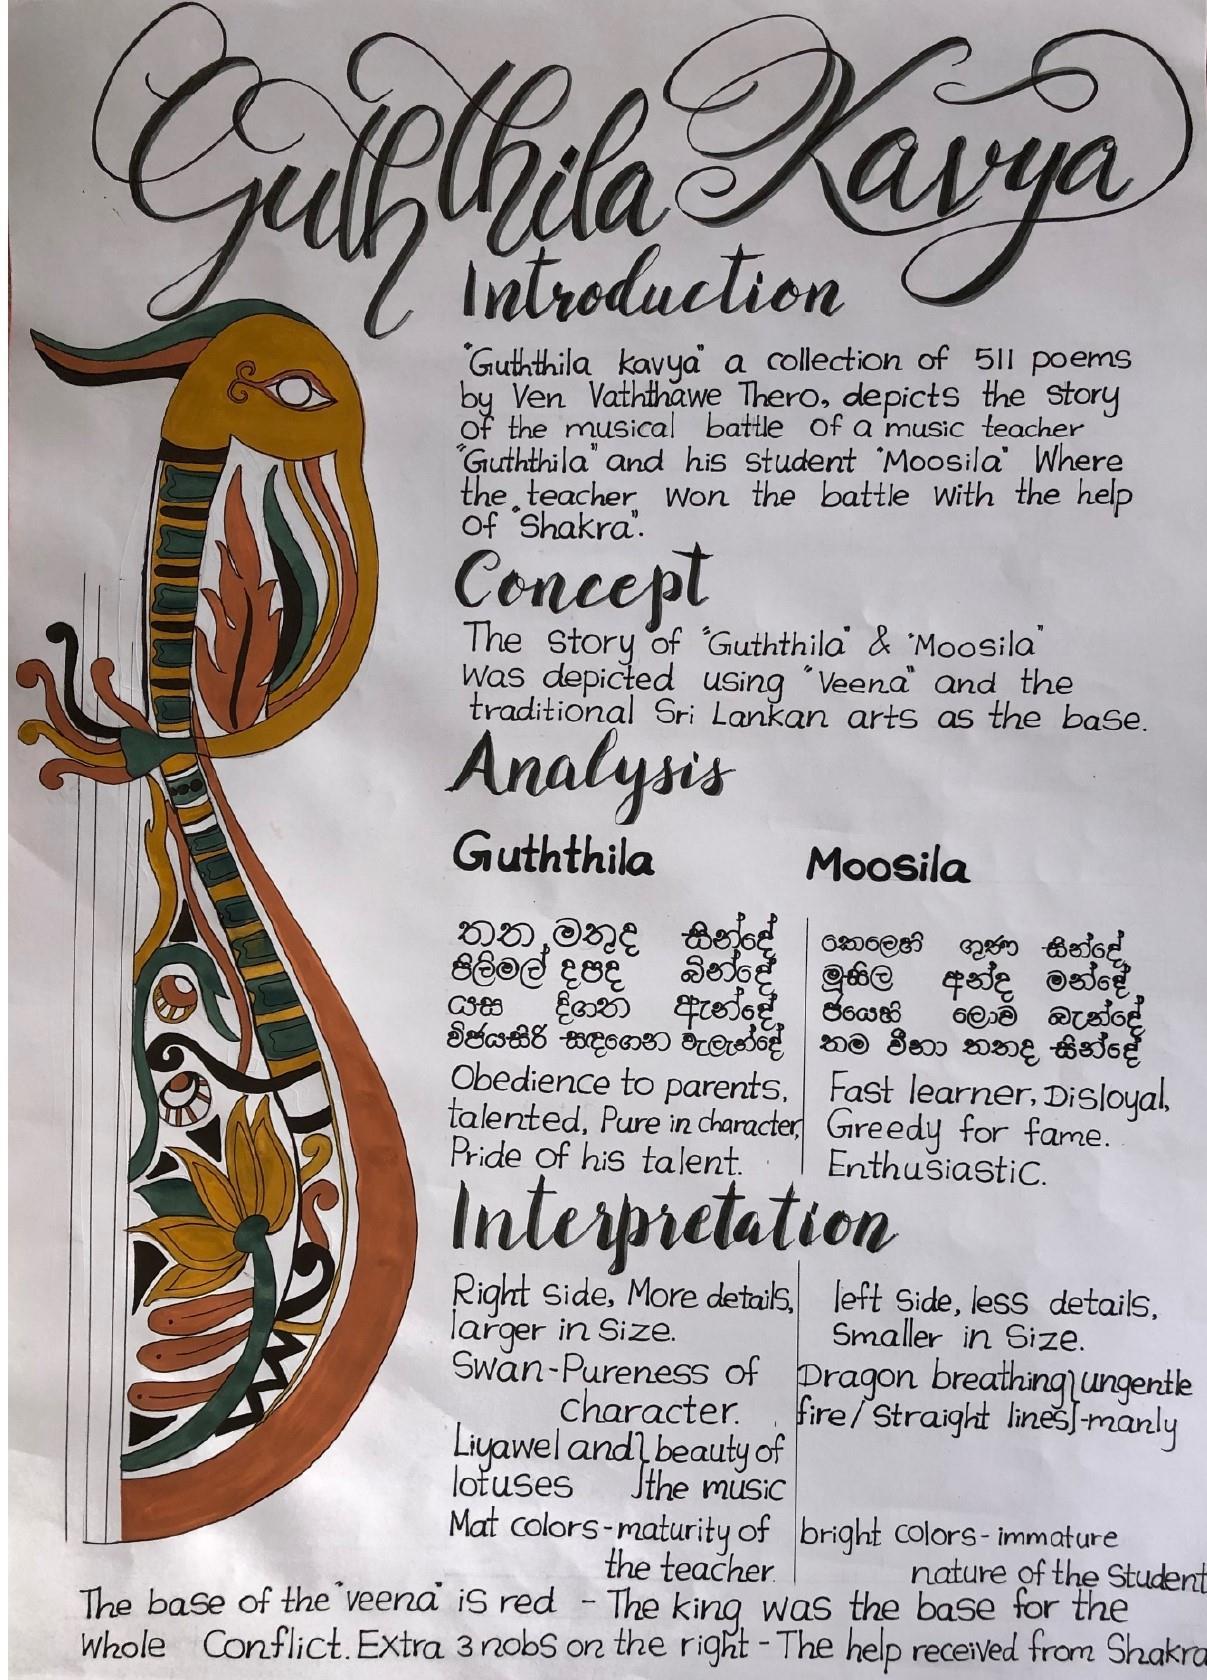 Guththila Kavya
Introduction
"Guththila kavya" a collection of 511 poems
by Ven Vaththawe Thero, depicts the story
of the musical battle of a music teacher
"Guththila" and his student "Moosila" Where
the teacher won the battle with the help
of "Shakra".
Concept
The story of "Guththila" & "Moosila"
was depicted using "Veena" and the
traditional Sri Lankan arts as the base.
Analysis
Guththila
තත මතුද සින්දේ
පිලිමල් දපද බින්දේ
යස දිගත ඇන්දේ
විජයසිරි සඳගෙන වැලැන්දේ
Obedience to parents,
talented, Pure in character,
Pride of his talent.
Moosila
කෙලෙහි ගුණ සින්දේ
මූසිල අන්ද මන්දේ
ජයෙහි ලොව බැන්දේ
තම වීනා තතද සින්දේ
Fast learner, Disloyal,
Greedy for fame.
Enthusiastic.
Interpretation
Right side, More details,
larger in size.
Swan-Pureness of
character.
Liyawel and} beauty of
lotuses }the music
Mat colors-maturity of
the teacher.
left side, less details,
Smaller in size.
Dragon breathing} ungentle
fire/ straight lines}-manly
bright colors- immature
nature of the student
The base of the "veena" is red - The king was the base for the
whole Conflict. Extra 3 nobs on the right - The help received from Shakra